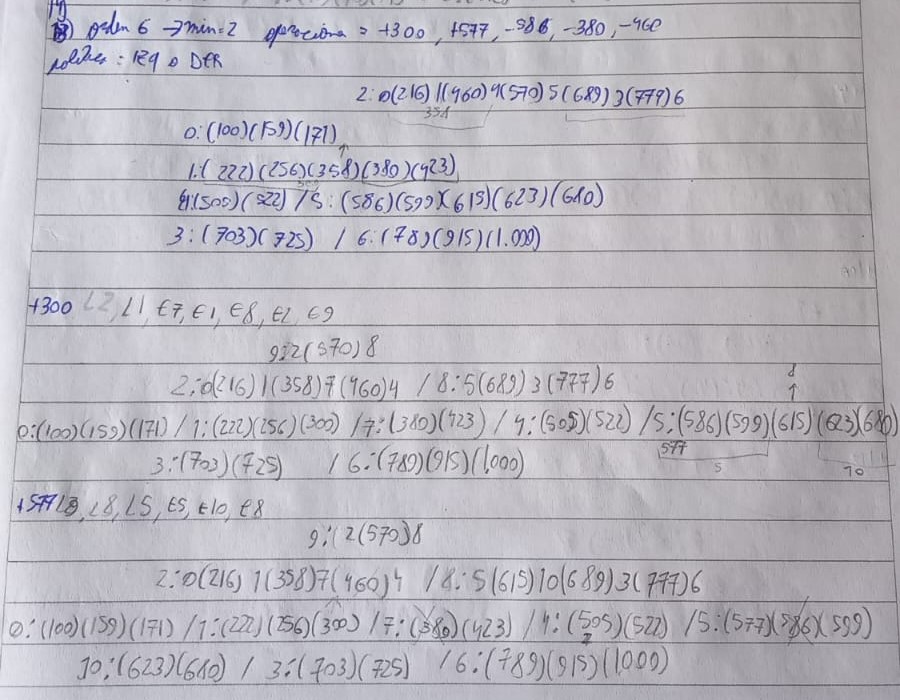 orden 6 → min=2 operaciones = +300, +577, -586, -380, -460
política: IZQ o DER
2: 0(216)1(460)4(570)5(689)3(779)6
358
0:(100)(159)(171)
1:(222)(256)(358)(380)(423)
4:(505)(522) / 5:(586)(599)(615)(623)(680)
3:(703)(725) / 6:(78)(915)(1.000)
+300 L2, L1, E7, E1, E8, E2, E9
9:2(570)8
2:0(216)1(358)7(460)4 / 8:5(689)3(777)6
0:(100)(159)(171) / 1:(222)(256)(300) / 7:(380)(423) / 4:(505)(522) / 5:(586)(599)(615)(623)(680)
577 5 10
3:(703)(725) / 6:(789)(915)(1.000)
+577 L9, L8, L5, E5, E10, E8
9:(2(570)8
2:0(216)1(358)7(460)4 / 8:5(615)10(689)3(777)6
0:(100)(159)(171) / 1:(222)(256)(300) / 7:(380)(423) / 4:(505)(522) / 5:(577)(586)(599)
10:(623)(680) / 3:(703)(725) / 6:(789)(915)(1000)